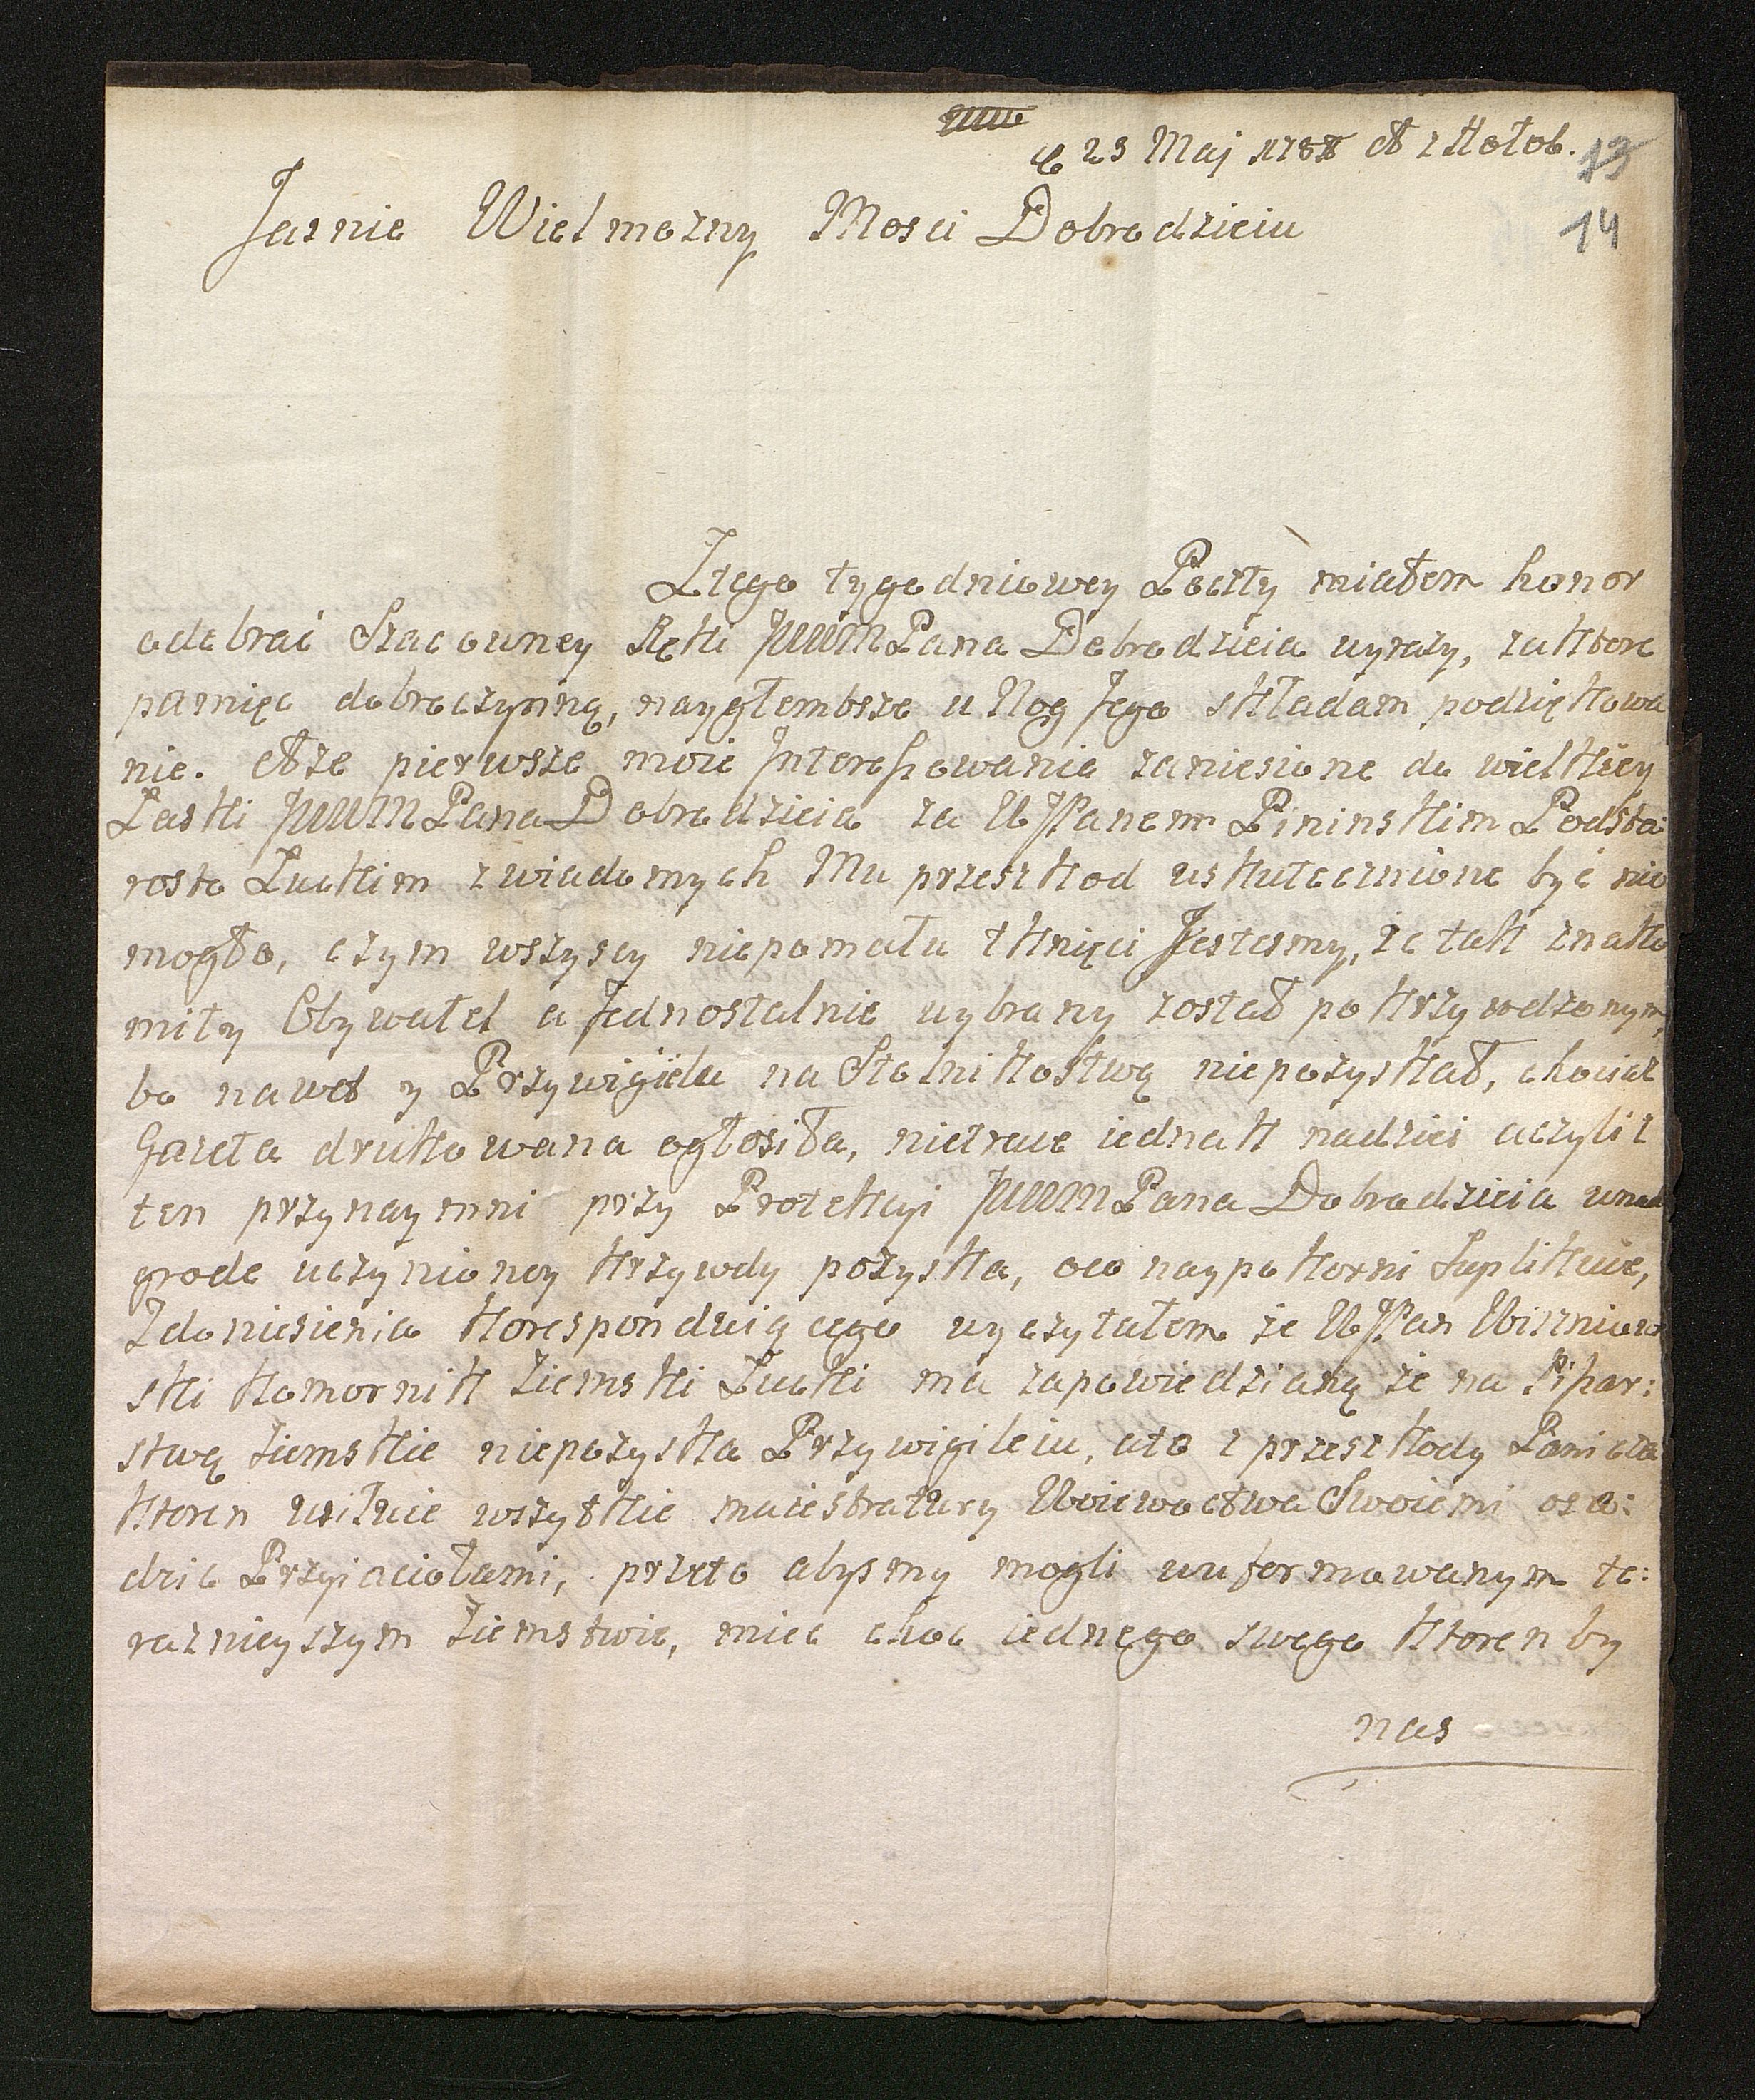 23 Maj 1788 z Hołob.
13
14
Jasnie Wielmozny Mosci Dobrodzieiu
Ztego tygodniowey Poczty miałem honor
odebrać Szacowney Ręki JWWM Pana Dobrodzieia wyrazy, za ktore
pamięc dobroczynną, nayglembsze u Nog Jego składam podziękowa
nie. A że pierwsze moie Interessowanie zaniesione do wielkiey
Łaski JWWM Pana Dobrodzieia za WJPanem Pininskim Podsta:
rosto Łuckim z wiadomych Mu przeszkod uskutecznione być nie
mogło, czym wszyscy niepomału tknięci Jestesmy, że tak znako
mity Obywatel a Jednostalnie wybrany został pokrzywdzonym,
bo nawet y Przywigileu na Stolnikostwę niepozyskał, chociaz
Gazeta drukowana ogłosiła, nietrace iednak nadziei aczyliz
ten przynaymni przy Protekcyi JWWM Pana Dobrodzieia wna
grode uczynioney krzywdy pozyska, oco naypokorni Suplikuie,
Zdoniesienia korespondziącego wyczytałem że WJPan
ski komornik Ziemski Łucki ma zapowiedzianą że na Pisar:
stwę Ziemskie niepozyska Przywigileiu, ato z przeszkody
ktoren usiłuie wszytkie maiestratury Woiewoctwa Swoiemi osa:
dzic Przyiaciołami, przeto abysmy mogli wuformowanym te:
raznieyszym Ziemstwie, miec choc iednego swego ktoren by
nas